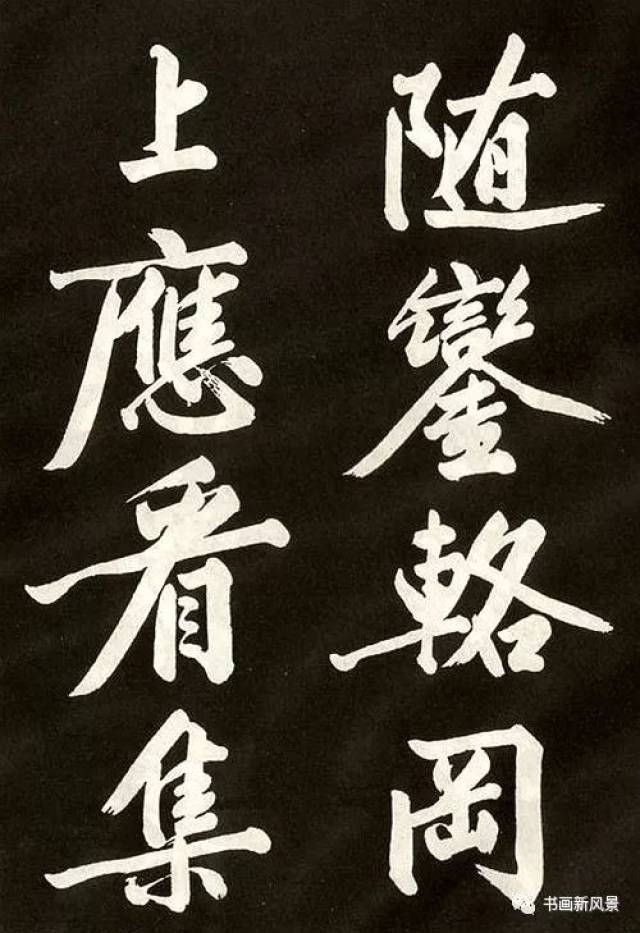 随鑾輅岡
上應看集
书画新风景